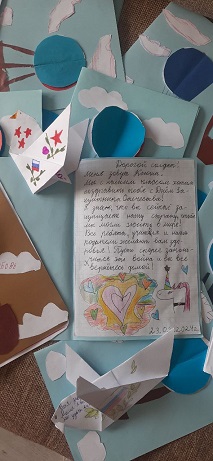 Дорогой солдат!
Меня зовут Ксюша.
Мы с нашим классом хотим
поздравить тебя с Днём За-
щитника Отечества!
Я знаю, что вы сейчас за-
щищаете нашу страну, чтобы
мы могли жить в мире.
Все ребята, учителя и наши
родители желают вам здо-
ровья! Пусть скорее закон-
чится эта война и вы все
вернётесь домой!